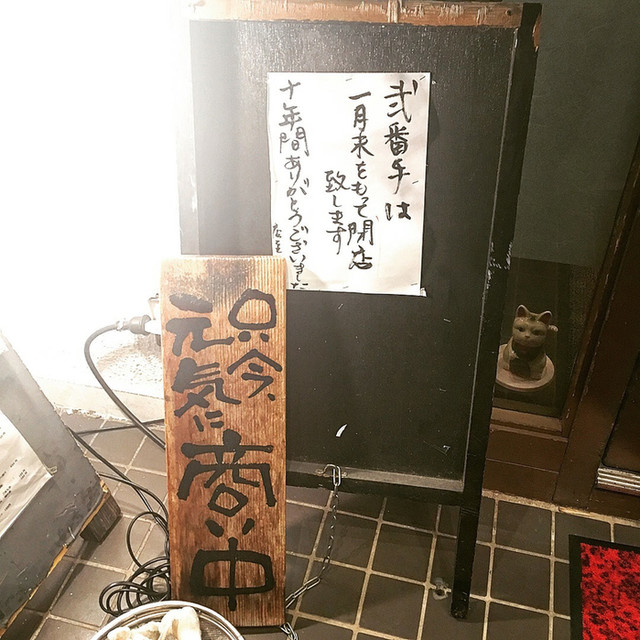 弐番手は
一月末をもって閉店
致します
十年間ありがとうございました
店主
只今、
元気に
商い中